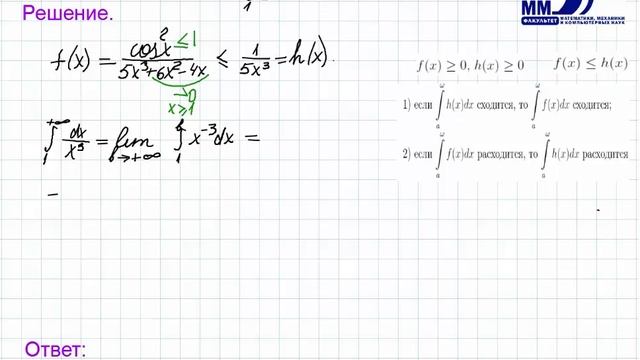 Решение.
ММ
ФАКУЛЬТЕТ МАТЕМАТИКИ, МЕХАНИКИ И КОМПЬЮТЕРНЫХ НАУК
f(x) = cos²x / (5x³+6x²-4x) ≤ 1/(5x³) = h(x).
≤1
≥0
x≥1
f(x) ≥ 0, h(x) ≥ 0 f(x) ≤ h(x)
1) если ∫_a^ω h(x)dx сходится, то ∫_a^ω f(x)dx сходится;
2) если ∫_a^ω f(x)dx расходится, то ∫_a^ω h(x)dx расходится
∫_1^{+∞} dx/x³ = lim_{b→+∞} ∫_1^b x⁻³dx =
Ответ: